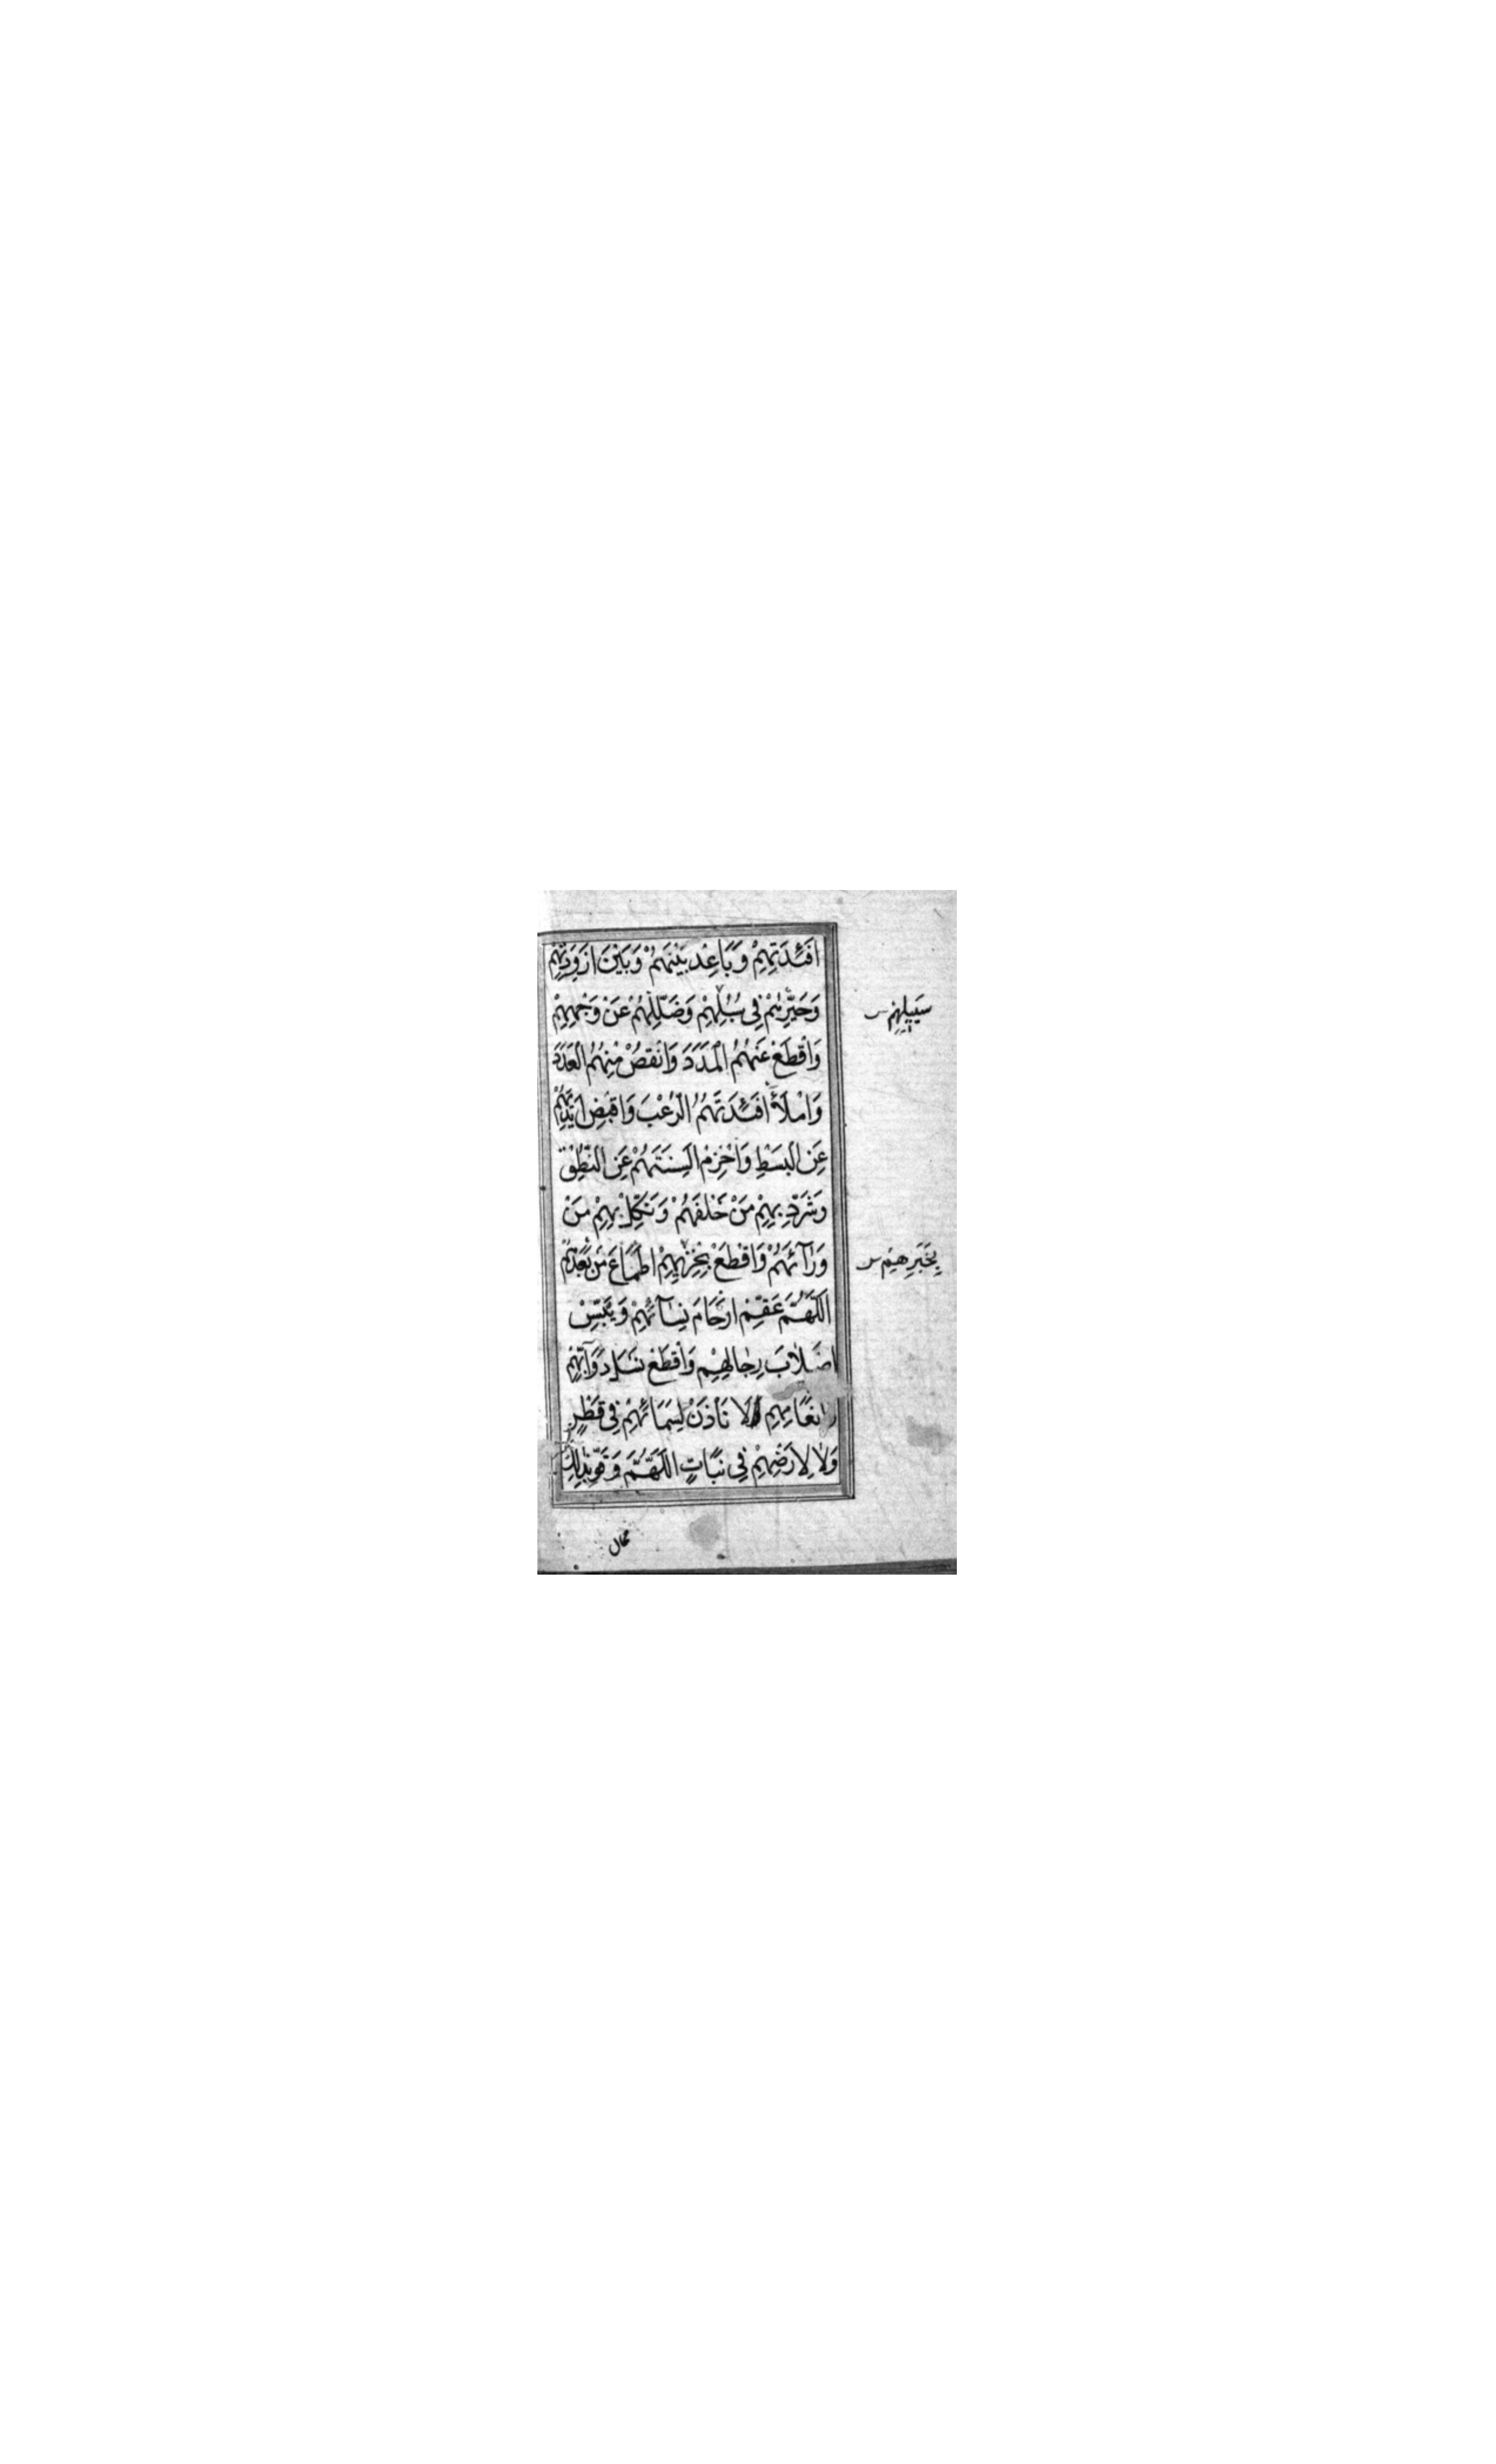 اَفْئِدَتِهِمْ وَبَاعِدْ بَيْنَهُمْ وَبَيْنَ اَزْوِدَتِهِمْ
وَحَيِّرْهُمْ فِى سُبُلِهِمْ وَضَلِّلْهُمْ عَنْ وَجْهِهِمْ
سَبيلِهِم
وَاقْطَعْ عَنْهُمُ الْمَدَدَ وَانْقُصْ مِنْهُمُ الْعَدَدَ
وَامْلَأْ اَفْئِدَتَهُمُ الرُّعْبَ وَاقْبِضْ اَيْدِيَهُمْ
عَنِ الْبَسْطِ وَاخْزِمْ اَلْسِنَتَهُمْ عَنِ النُّطْقِ
وَشَرِّدْ بِهِمْ مَنْ خَلْفَهُمْ وَنَكِّلْ بِهِمْ مَنْ
وَرَآئَهُمْ وَاقْطَعْ بِخِزْيِهِمْ اَطْمَاعَ مَنْ بَعْدَهُمْ
اَللّٰهُمَّ عَقِّمْ اَرْحَامَ نِسَآئِهِمْ وَيَبِّسْ
اَصْلَابَ رِجَالِهِمْ وَاقْطَعْ نَسْلَ دَوَآبِّهِمْ
وَاَنْعَامِهِمْ لَا تَأْذَنْ لِسَمَائِهِمْ فِى قَطْرٍ
وَلَا لِاَرْضِهِمْ فِى نَبَاتٍ اَللّٰهُمَّ وَقَوِّ بِذٰلِكَ
محال